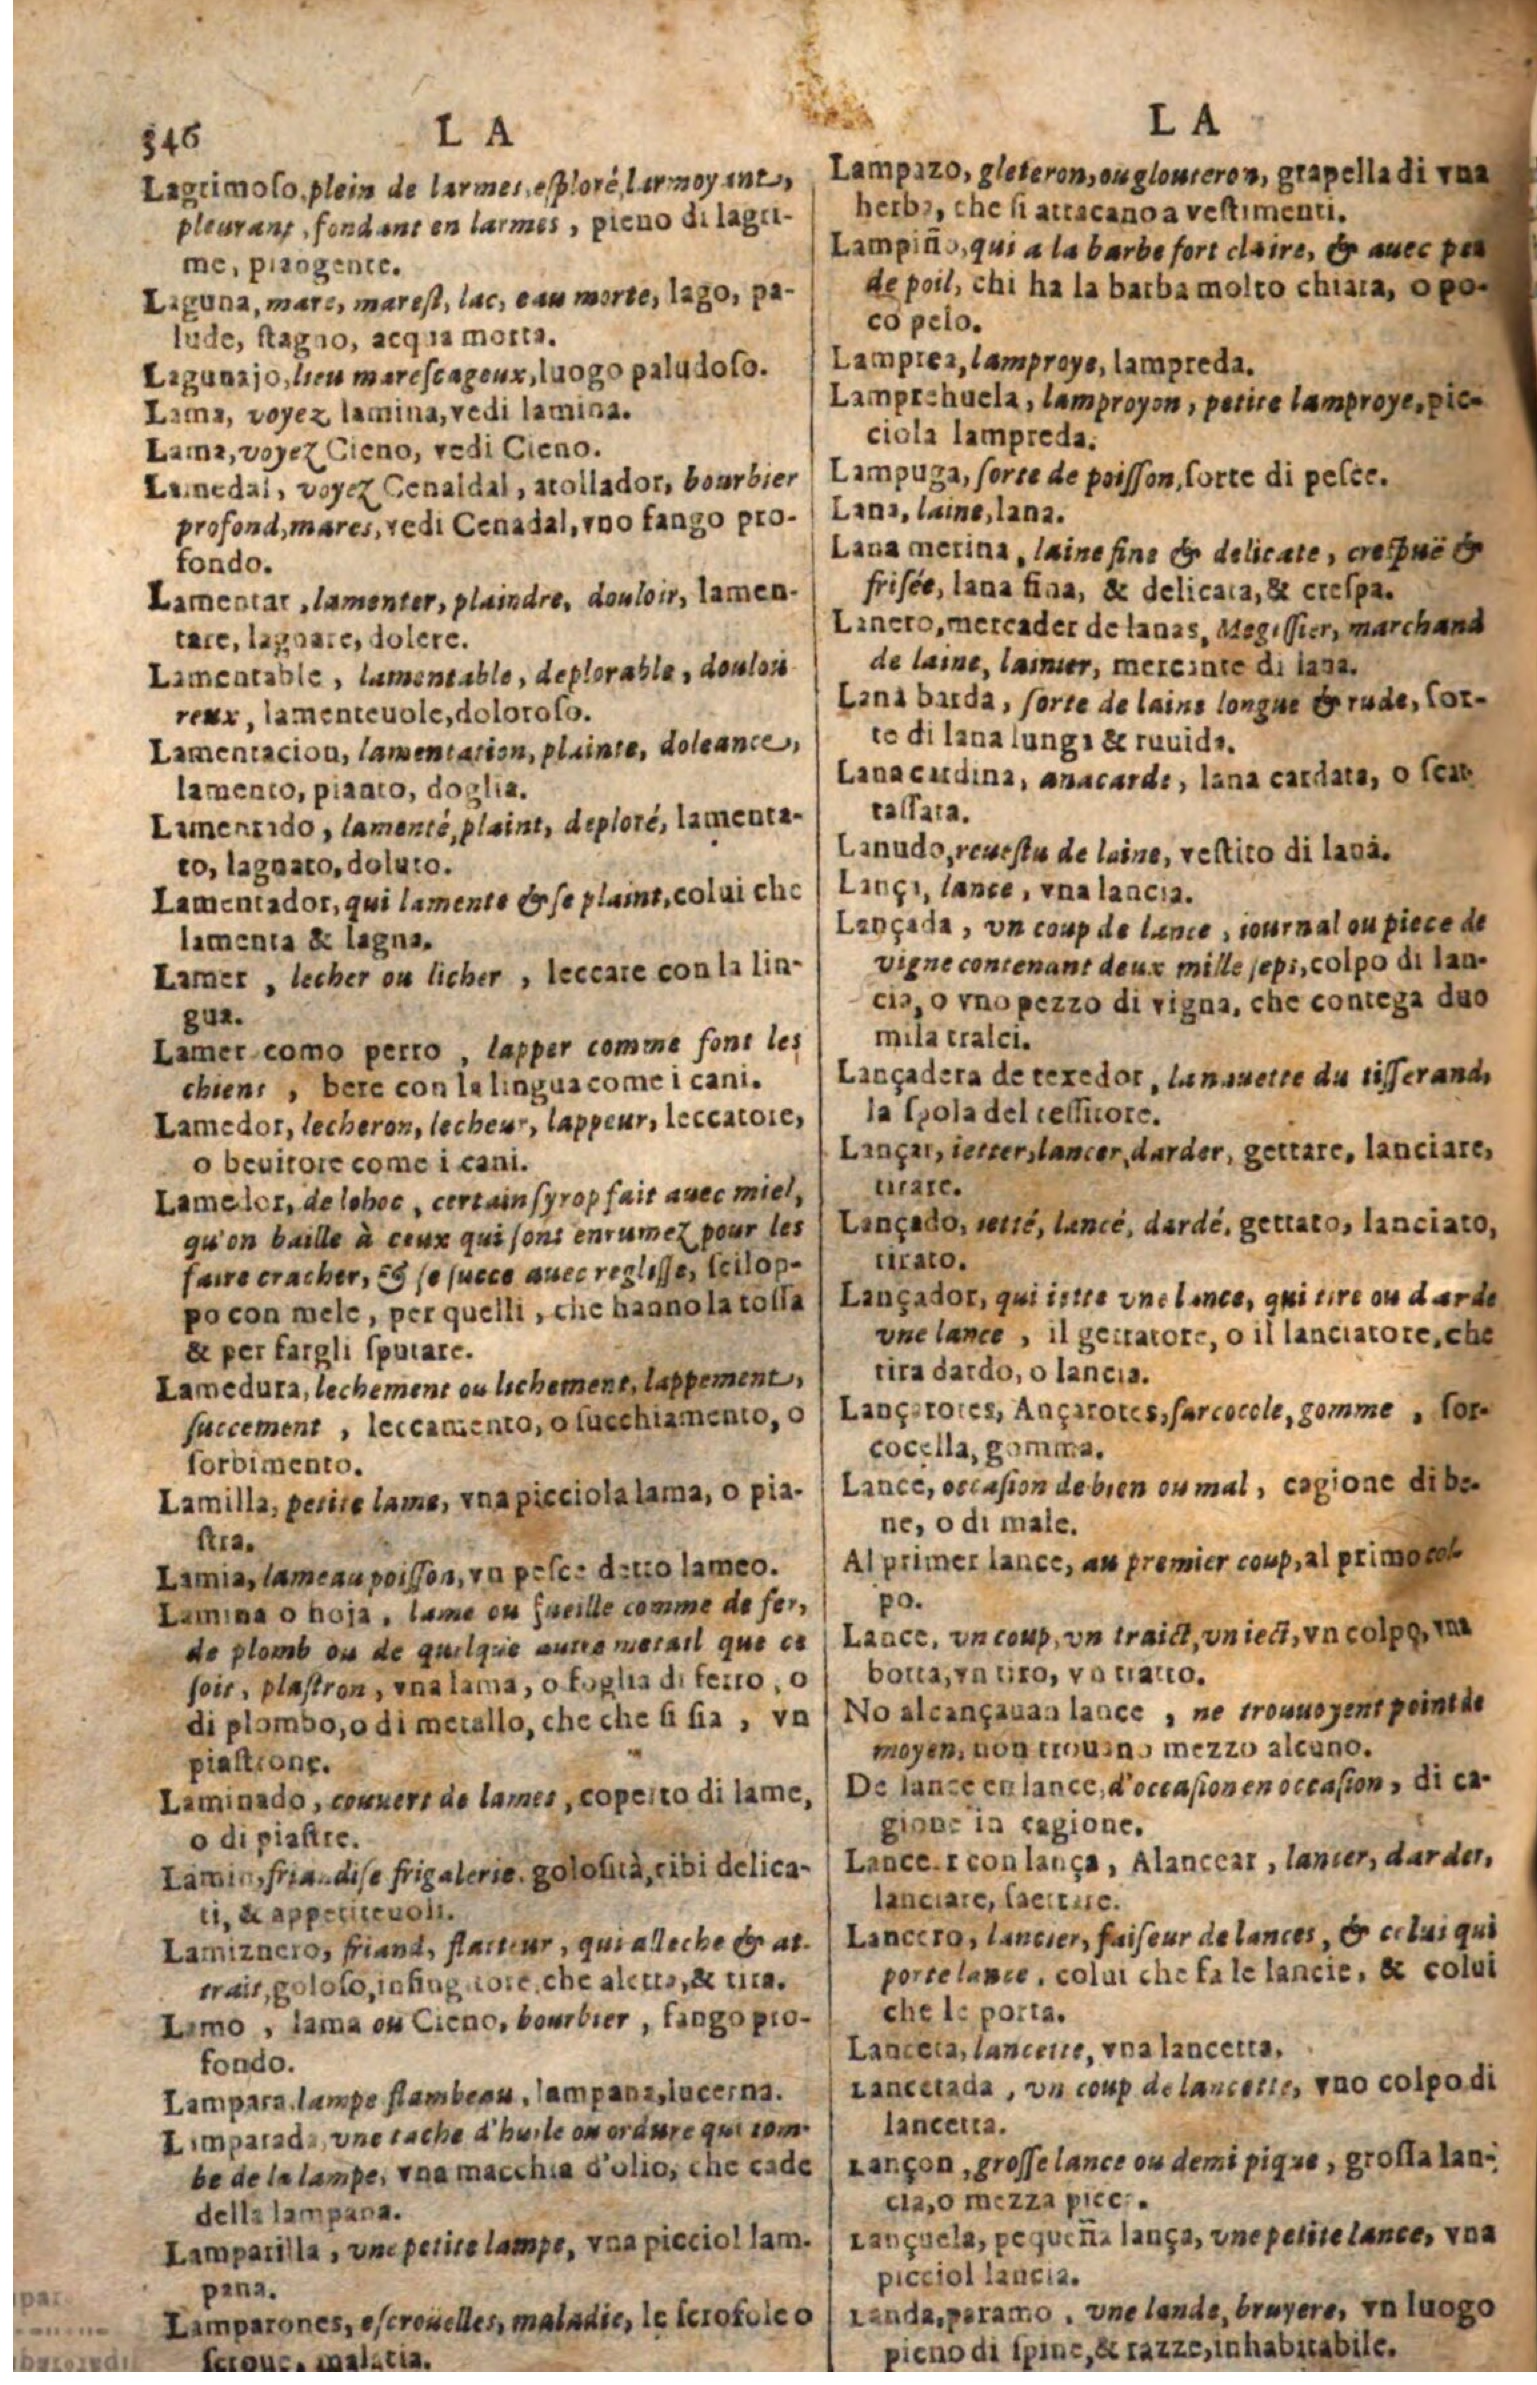 346
L A
Lagrimoso, plein de larmes, esploré, larmoyant,
pleurant, fondant en larmes, pieno di lagri-
me, piangente.
Laguna, mare, marest, lac, eau morte, lago, pa-
lude, stagno, acqua morta.
Lagunajo, lieu marescageux, luogo paludoso.
Lama, voyez lamina, vedi lamina.
Lama, voyez Cieno, vedi Cieno.
Lamedal, voyez Cenaldal, atollador, bourbier
profond, mares, vedi Cenadal, vno fango pro-
fondo.
Lamentar, lamenter, plaindre, douloir, lamen-
tare, lagnare, dolere.
Lamentable, lamentable, deplorable, doulou
reux, lamenteuole, doloroso.
Lamentacion, lamentation, plainte, doleance,
lamento, pianto, doglia.
Lamentado, lamenté, plaint, deploré, lamenta-
to, lagnato, doluto.
Lamentador, qui lamente & se plaint, colui che
lamenta & lagna.
Lamer, lecher ou licher, leccare con la lin-
gua.
Lamer como perro, lapper comme font les
chiens, bere con la lingua come i cani.
Lamedor, lecheron, lecheur, lappeur, leccatore,
o beuitore come i cani.
Lamedor, de lohoc, certain syrop fait auec miel,
qu'on baille à ceux qui sont enrumez pour les
faire cracher, & se succe auec reglisse, scilop-
po con mele, per quelli, che hanno la tossa
& per fargli sputare.
Lamedura, lechement ou lichement, lappement,
succement, leccamento, o succhiamento, o
sorbimento.
Lamilla, petite lame, vna picciola lama, o pia-
stra.
Lamia, lameau poisson, vn pesce detto lameo.
Lamina o hoja, lame ou fueille comme de fer,
de plomb ou de quelque autre metail que ce
soit, plastron, vna lama, o foglia di ferro, o
di plombo, o di metallo, che che si sia, vn
piastrone.
Laminado, couuert de lames, coperto di lame,
o di piastre.
Lamin, friandise frigalerie, golosità, cibi delica-
ti, & appetiteuoli.
Lamiznero, friand, flatteur, qui alleche & at-
trait, goloso, che aletta, & tira.
Lamo, lama ou Cieno, bourbier, fango pro-
fondo.
Lampara, lampe flambeau, lampana, lucerna.
Lamparada, vne tache d'huile ou ordure qui tom-
be de la lampe, vna macchia d'olio, che cade
della lampana.
Lamparilla, vne petite lampe, vna picciol lam-
pana.
Lamparones, escrouelles, maladie, le scrofole o
scroue, malatia.
L A
Lampazo, gleteron, ou glouteron, grapella di vna
herba, che si attacano a vestimenti.
Lampiño, qui a la barbe fort claire, & auec peu
de poil, chi ha la barba molto chiara, o po-
co pelo.
Lamprea, lamproye, lampreda.
Lamprehuela, lamproyon, petite lamproye, pic-
ciola lampreda.
Lampuga, sorte de poisson, sorte di pesce.
Lana, laine, lana.
Lana merina, laine fine & delicate, crespuë &
frisée, lana fina, & delicata, & crespa.
Lanero, mercader de lanas, Megissier, marchand
de laine, lainier, mercante di lana.
Lana barda, sorte de laine longue & rude, sor-
te di lana lunga & ruuida.
Lana cardina, anacarde, lana cardata, o scar-
tassata.
Lanudo, reuestu de laine, vestito di lana.
Lança, lance, vna lancia.
Lançada, vn coup de lance, iournal ou piece de
vigne contenant deux mille seps, colpo di lan-
cia, o vno pezzo di vigna, che contega duo
mila tralci.
Lançadera de texedor, la nauette du tisserand,
la spola del tessitore.
Lançar, ietter, lancer, darder, gettare, lanciare,
tirare.
Lançado, ietté, lancé, dardé, gettato, lanciato,
tirato.
Lançador, qui iette vne lance, qui tire ou darde
vne lance, il gettatore, o il lanciatore, che
tira dardo, o lancia.
Lançarotes, Ançarotes, sarcocole, gomme, sor-
cocella, gomma.
Lance, occasion de bien ou mal, cagione di be-
ne, o di male.
Al primer lance, au premier coup, al primo col-
po.
Lance, vn coup, vn traict, vn iect, vn colpo, vna
botta, vn tiro, vn tratto.
No alcançauan lance, ne trouuoyent point de
moyen, non trouano mezzo alcuno.
De lance en lance, d'occasion en occasion, di ca-
gione in cagione.
Lancear con lança, Alancear, lancer, darder,
lanciare, saettare.
Lancero, lancier, faiseur de lances, & celui qui
porte lance, colui che fa le lancie, & colui
che le porta.
Lanceta, lancette, vna lancetta.
Lancetada, vn coup de lancette, vno colpo di
lancetta.
Lançon, grosse lance ou demi pique, grossa lan-
cia, o mezza picca.
Lançuela, pequeña lança, vne petite lance, vna
picciol lancia.
Landa, paramo, vne lande, bruyere, vn luogo
pieno di spine, & razze, inhabitabile.